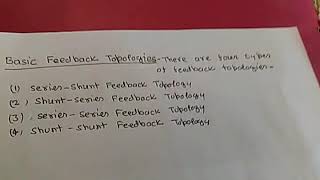 Basic Feedback Topologies - There are four types
of feedback topologies -
(1) Series - Shunt Feedback Topology
(2) Shunt - Series Feedback Topology
(3) Series - Series Feedback Topology
(4) Shunt - Shunt Feedback Topology